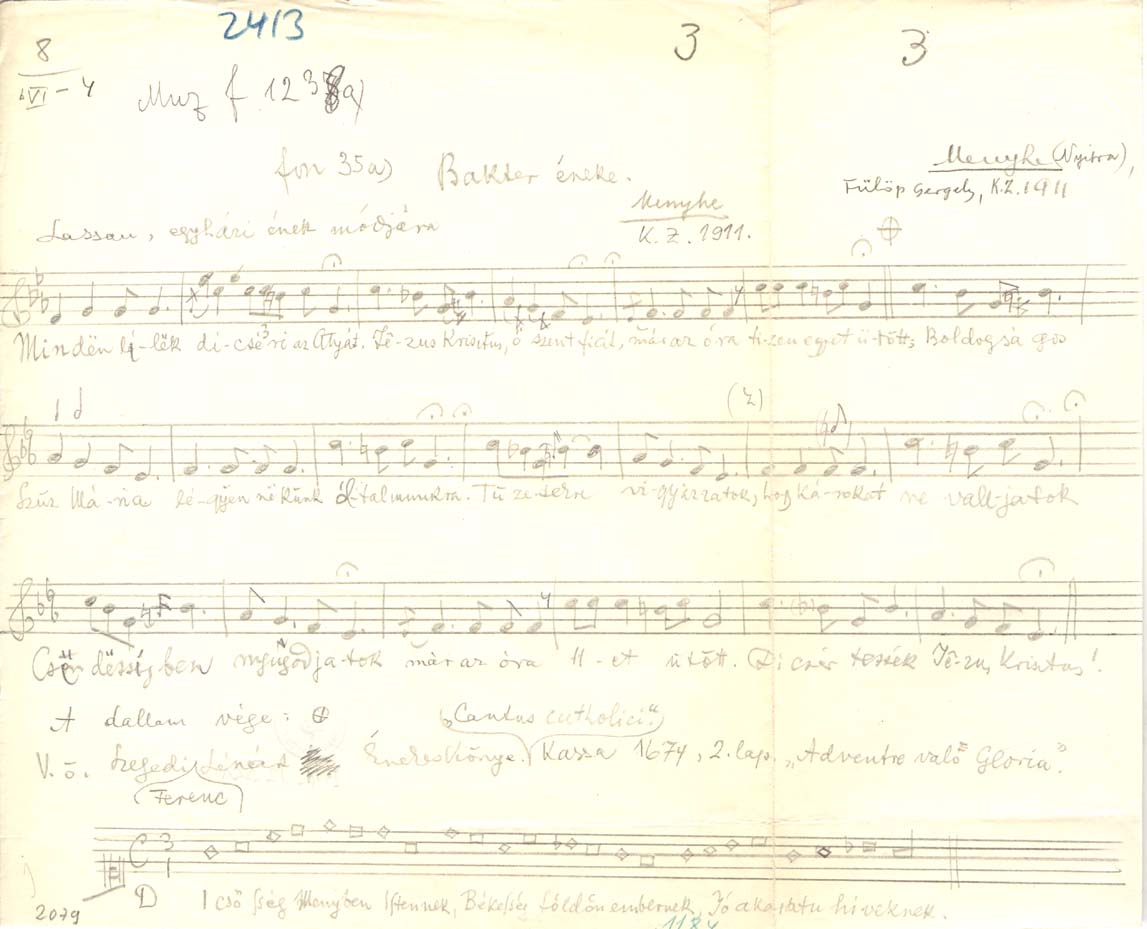 2413
8
VI - 4
3
3
Muz f 123 a)
fon 35a) Bakter éneke.
Menyhe (Nyitra),
Fülöp Gergely, K.Z. 1911
Menyhe
K. Z. 1911.
Lassan, egyházi ének módjára
Mindën lé-lëk di-csé-ri az Atyát. Jé-zus Krisztus, ó szent fiát, már az óra ti-zen egyet ü-tött; Boldogsá gos
Szűz Má-ria lé-gyen nékünk ótalmunkra. Tű ze-tekre vi-gyázzatok, hogy ká-rokat ne vall-jatok
(Z)
Csën dësség-ben nyugodja-tok már az óra 11-et ütött. Di csér tessék Jé-zus Krisztus!
A dallam vége:
V. ö. Szegedi Lénárd Énekeskönyve. („Cantus catholici") Kassa 1674, 2. lap. „Adventre való Gloria".
(Ferenc)
C 3
1
D I cső sség Menyben Istennek, Békesség földön embernek, Jó akaratu hiveknek.
2079
1184